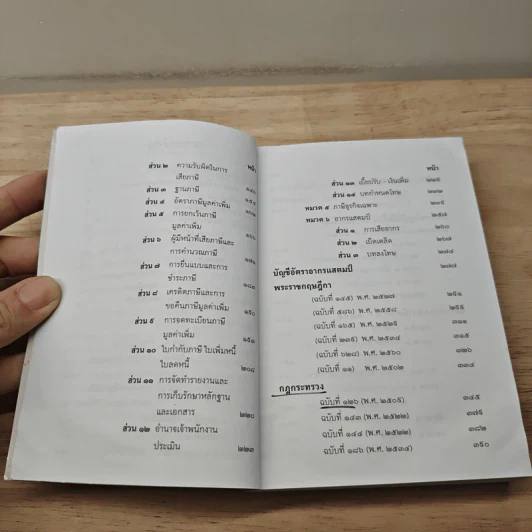 หน้า
ส่วน ๒ ความรับผิดในการ
เสียภาษี
ส่วน ๓ ฐานภาษี
ส่วน ๔ อัตราภาษีมูลค่าเพิ่ม
ส่วน ๕ การยกเว้นภาษี
มูลค่าเพิ่ม
ส่วน ๖ ผู้มีหน้าที่เสียภาษีและ
การคำนวณภาษี
ส่วน ๗ การยื่นแบบและการ
ชำระภาษี
ส่วน ๘ เครดิตภาษีและการ
ขอคืนภาษีมูลค่าเพิ่ม
ส่วน ๙ การจดทะเบียนภาษี
มูลค่าเพิ่ม
ส่วน ๑๐ ใบกำกับภาษี ใบเพิ่มหนี้
ใบลดหนี้ ๒๐๘
ส่วน ๑๑ การจัดทำรายงานและ
การเก็บรักษาหลักฐาน
และเอกสาร ๒๒๐
ส่วน ๑๒ อำนาจเจ้าพนักงาน
ประเมิน ๒๒๓
หน้า
ส่วน ๑๓ เบี้ยปรับ - เงินเพิ่ม
ส่วน ๑๔ บทกำหนดโทษ
หมวด ๕ ภาษีธุรกิจเฉพาะ
หมวด ๖ อากรแสตมป์ ๒๕๗
ส่วน ๑ การเสียอากร ๒๖๐
ส่วน ๒ เบ็ดเตล็ด ๒๖๗
ส่วน ๓ บทลงโทษ
บัญชีอัตราอากรแสตมป์ ๒๗๗
พระราชกฤษฎีกา
(ฉบับที่ ๑๔๕) พ.ศ. ๒๕๒๗ ๒๙๑
(ฉบับที่ ๕๘๖) พ.ศ. ๒๕๕๘
(ฉบับที่ ๑๖๕) พ.ศ. ๒๕๒๙ ๓๑๑
(ฉบับที่ ๒๓๙) พ.ศ. ๒๕๓๔ ๓๑๕
(ฉบับที่ ๖๒๘) พ.ศ. ๒๕๖๐ ๓๒๖
(ฉบับที่ ๑๑) พ.ศ. ๒๕๐๒ ๓๓๔
กฎกระทรวง
ฉบับที่ ๑๒๖ (พ.ศ. ๒๕๐๙) ๓๔๕
ฉบับที่ ๑๔๓ (พ.ศ. ๒๕๒๒) ๓๗๕
ฉบับที่ ๑๔๔ (พ.ศ. ๒๕๒๒) ๓๘๒
ฉบับที่ ๑๘๖ (พ.ศ. ๒๕๓๔) ๓๙๐